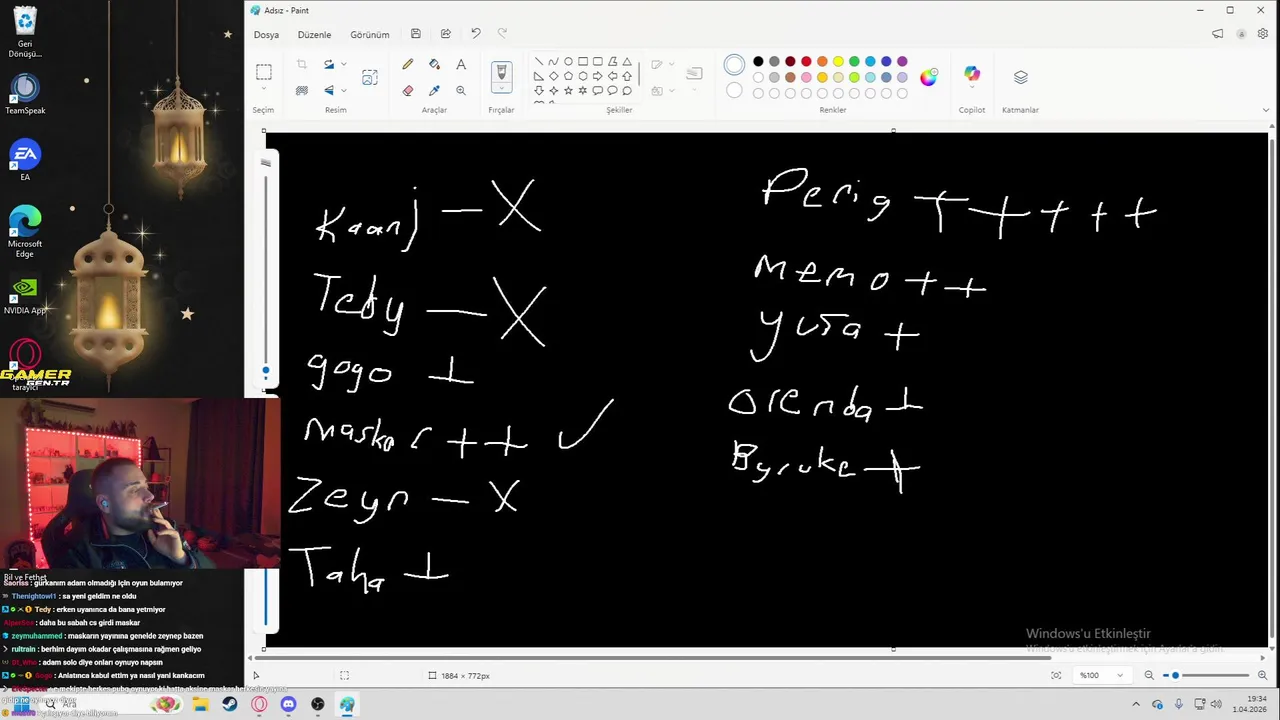 Adsız - Paint
Dosya Düzenle Görünüm
Seçim Resim Araçlar Fırçalar Şekiller Renkler Copilot Katmanlar
Geri Dönüşü...
TeamSpeak
EA
Microsoft Edge
NVIDIA App
tarayıcı
GAMER
GEN.TR
Kaanj — X
Tedy — X
gogo +
Maskar ++ ✓
Zeyn — X
Taha +
Perig +++++
Memo ++
Yusa +
Orenda +
Byruke +
Bil ve Fethet
Saoriss : gurkanım adam olmadığı için oyun bulamıyor
Thenightowl1 : sa yeni geldim ne oldu
Tedy : erken uyanınca da bana yetmiyor
AlperSos : daha bu sabah cs girdi maskar
zeymuhammed : maskarın yayınına genelde zeynep bazen
rultrain : berhim dayım okadar çalışmasına rağmen geliyo
adam solo diye onları oynuyo napsın
Gogo : Anlatınca kabul ettim ya nasıl yani kankacım
Windows'u Etkinleştir
Windows'u etkinleştirmek için Ayarlar'a gidin.
1884 × 772px
%100
Ara
19:34
1.04.2026